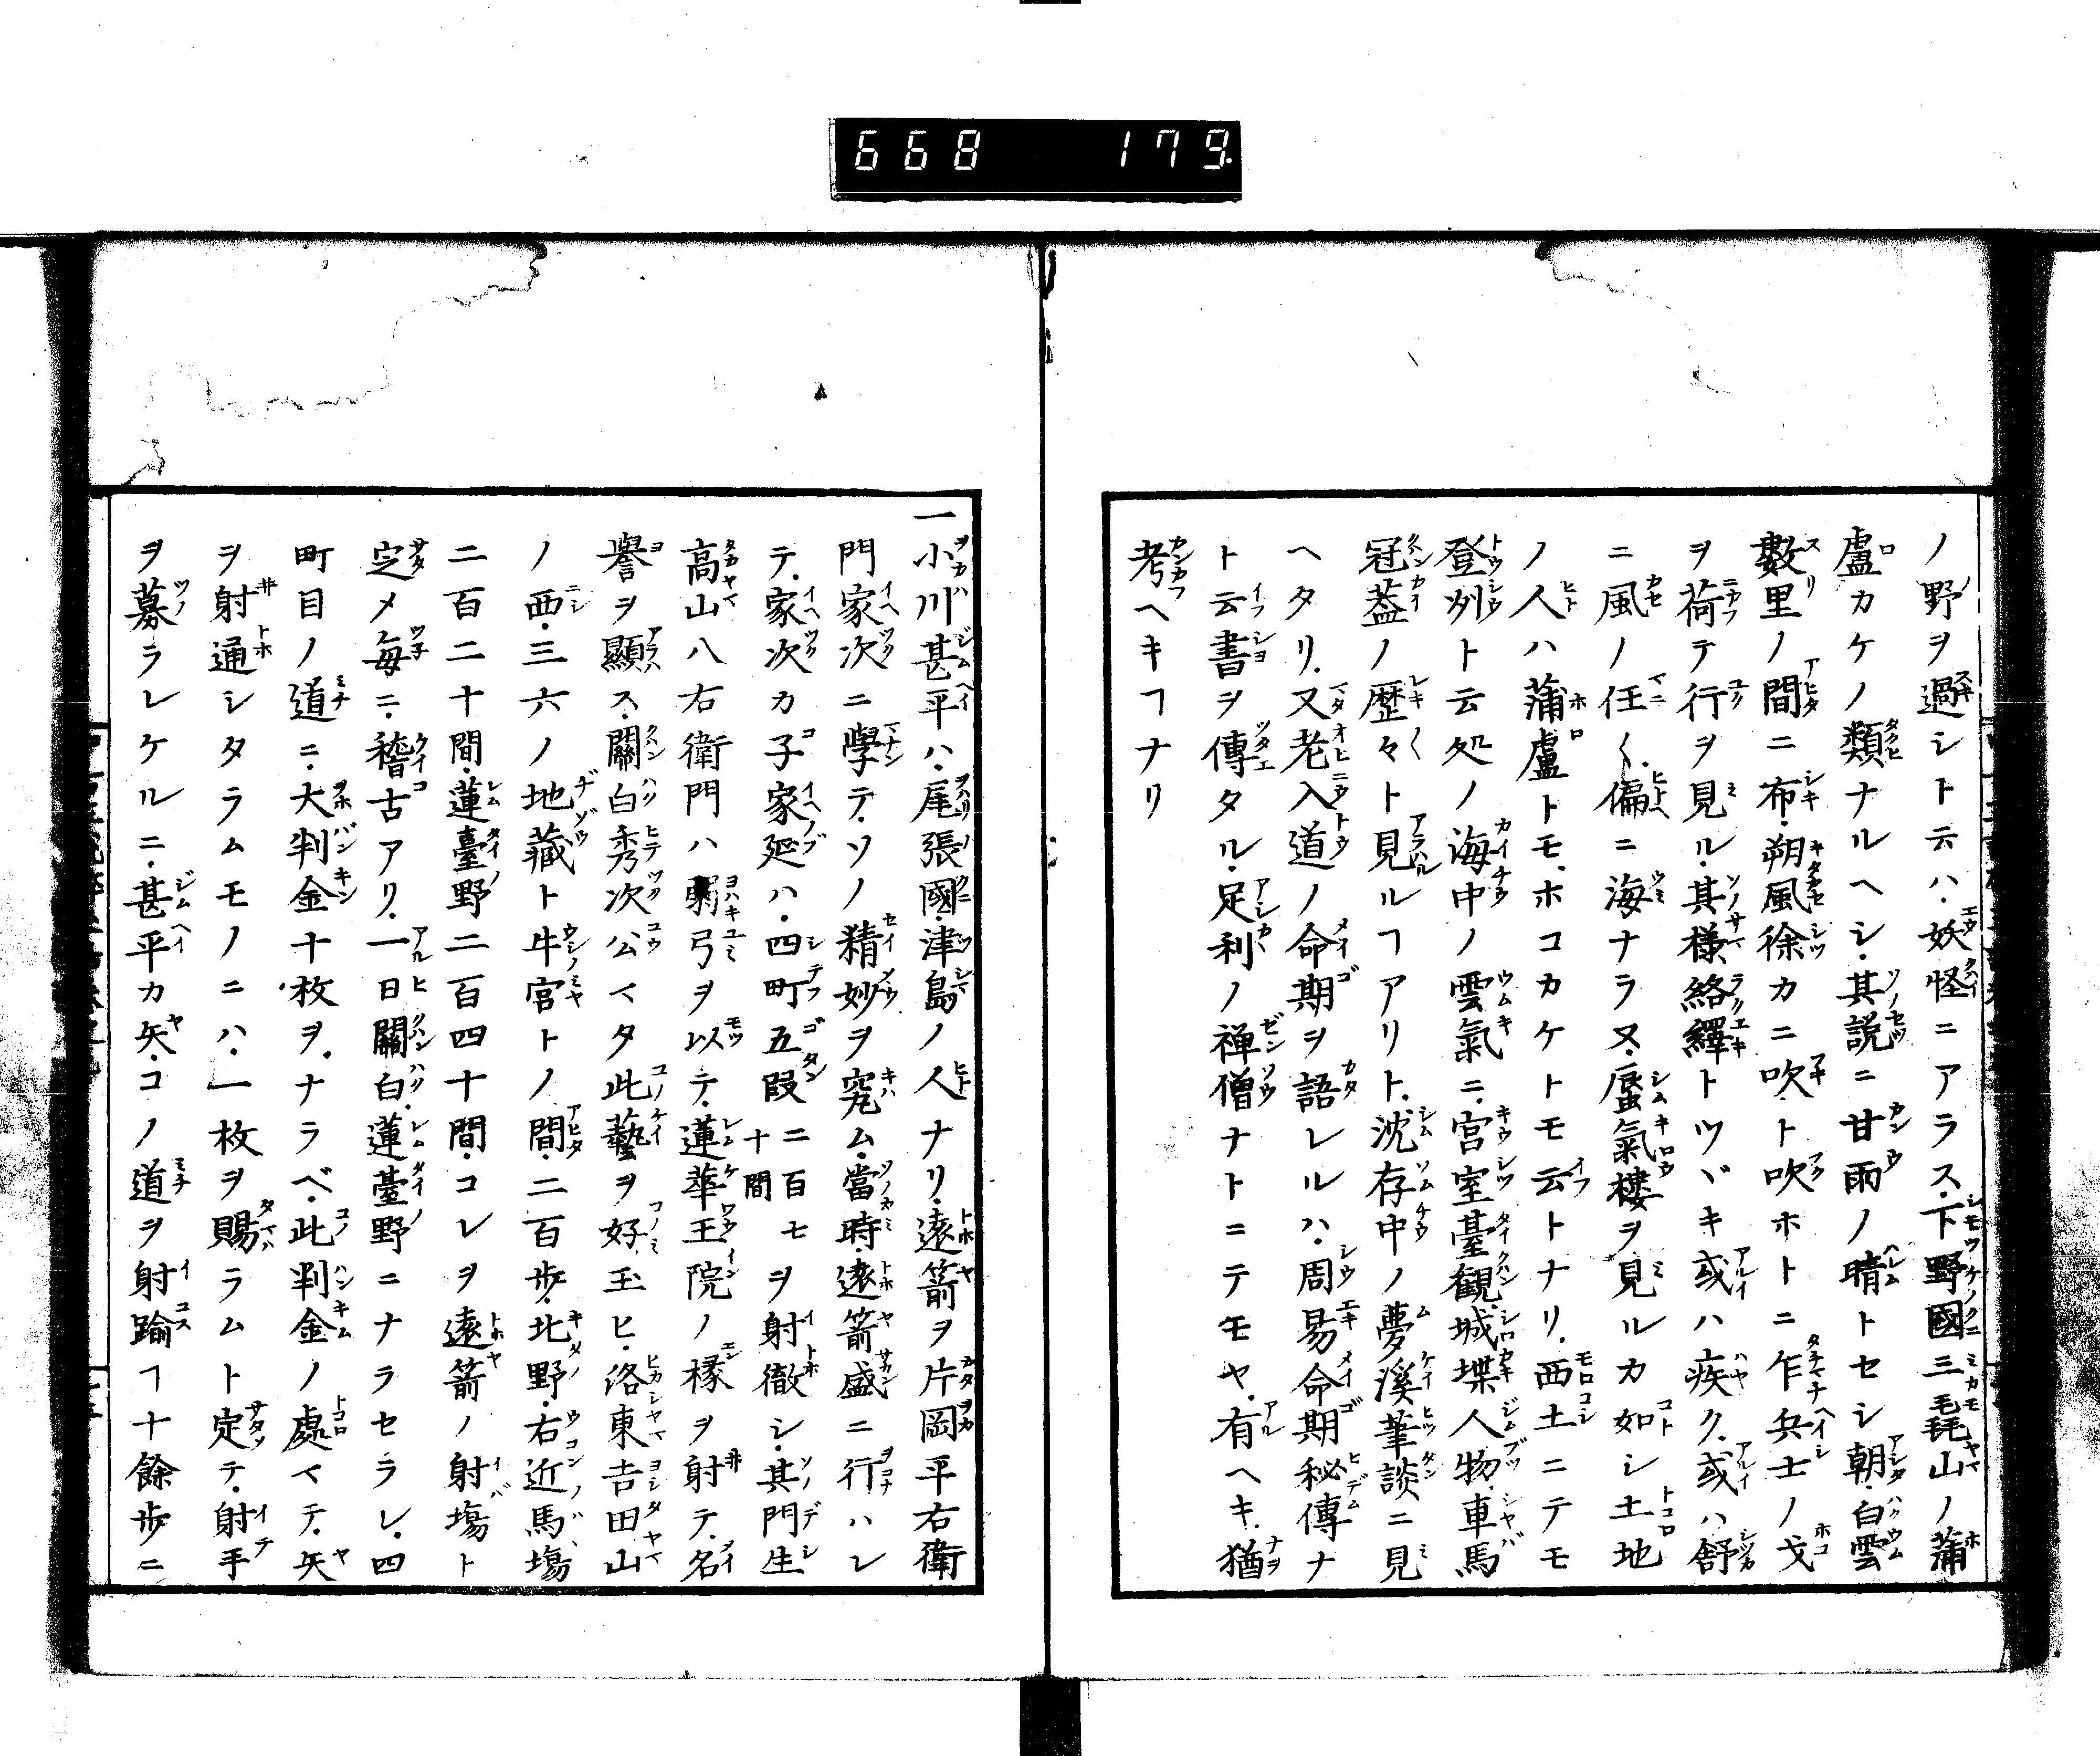 668 179
ノ野ヲ過シト云ハ妖怪ニアラス下野國三毳山ノ蒲
盧カケノ類ナルヘシ其説ニ甘雨ノ晴トセシ朝白雲
數里ノ間ニ布朔風徐カニ吹ト吹ホトニ乍兵士ノ戈
ヲ荷テ行ヲ見ル其様絡繹トツヾキ或ハ疾ク或ハ舒
ニ風ノ任〱偏ニ海ナラ又蜃氣樓ヲ見ルカ如シ土地
ノ人ハ蒲盧トモホコカケトモ云トナリ西土ニテモ
登州ト云処ノ海中ノ雲氣ニ宮室臺觀城堞人物車馬
冠蓋ノ歴々ト見ルヿアリト沈存中ノ夢溪筆談ニ見
ヘタリ又老入道ノ命期ヲ語レルハ周易命期秘傳ナ
ト云書ヲ傳タル足利ノ禅僧ナトニテモヤ有ヘキ猶
考ヘキヿナリ
一小川甚平ハ尾張國津島ノ人ナリ遠箭ヲ片岡平右衛
門家次ニ學テソノ精妙ヲ究ム當時遠箭盛ニ行ハレ
テ家次カ子家延ハ四町五段二百七十間ヲ射徹シ其門生
高山八右衛門ハ弱弓ヲ以テ蓮華王院ノ椽ヲ射テ名
譽ヲ顯ス關白秀次公マタ此藝ヲ好玉ヒ洛東吉田山
ノ西三六ノ地藏ト牛宮トノ間二百歩北野右近馬塲
二百二十間蓮臺野二百四十間コレヲ遠箭ノ射塲ト
定メ毎ニ稽古アリ一日關白蓮臺野ニナラセラレ四
町目ノ道ニ大判金十枚ヲナラベ此判金ノ處マテ矢
ヲ射通シタラムモノニハ一枚ヲ賜ラムト定テ射手
ヲ募ラレケルニ甚平カ矢コノ道ヲ射踰ヿ十餘歩ニ